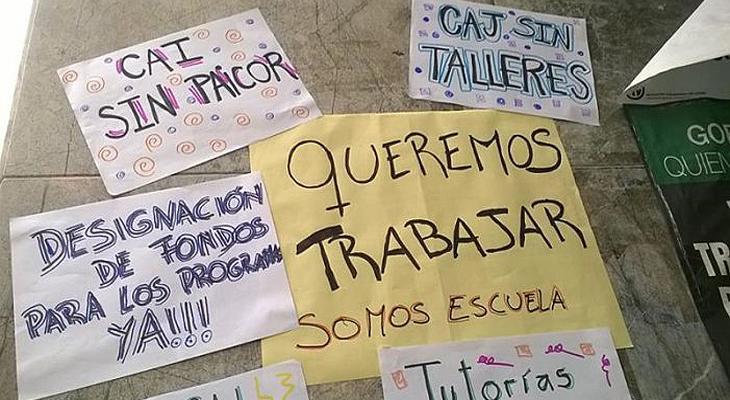 CAI
SIN PAICOR
CAJ SIN
TALLERES
QUEREMOS
TRABAJAR
SOMOS ESCUELA
DESIGNACIÓN
DE FONDOS
PARA LOS PROGRAMAS
YA!!!
Tutorías
GO
QUIEN
TR